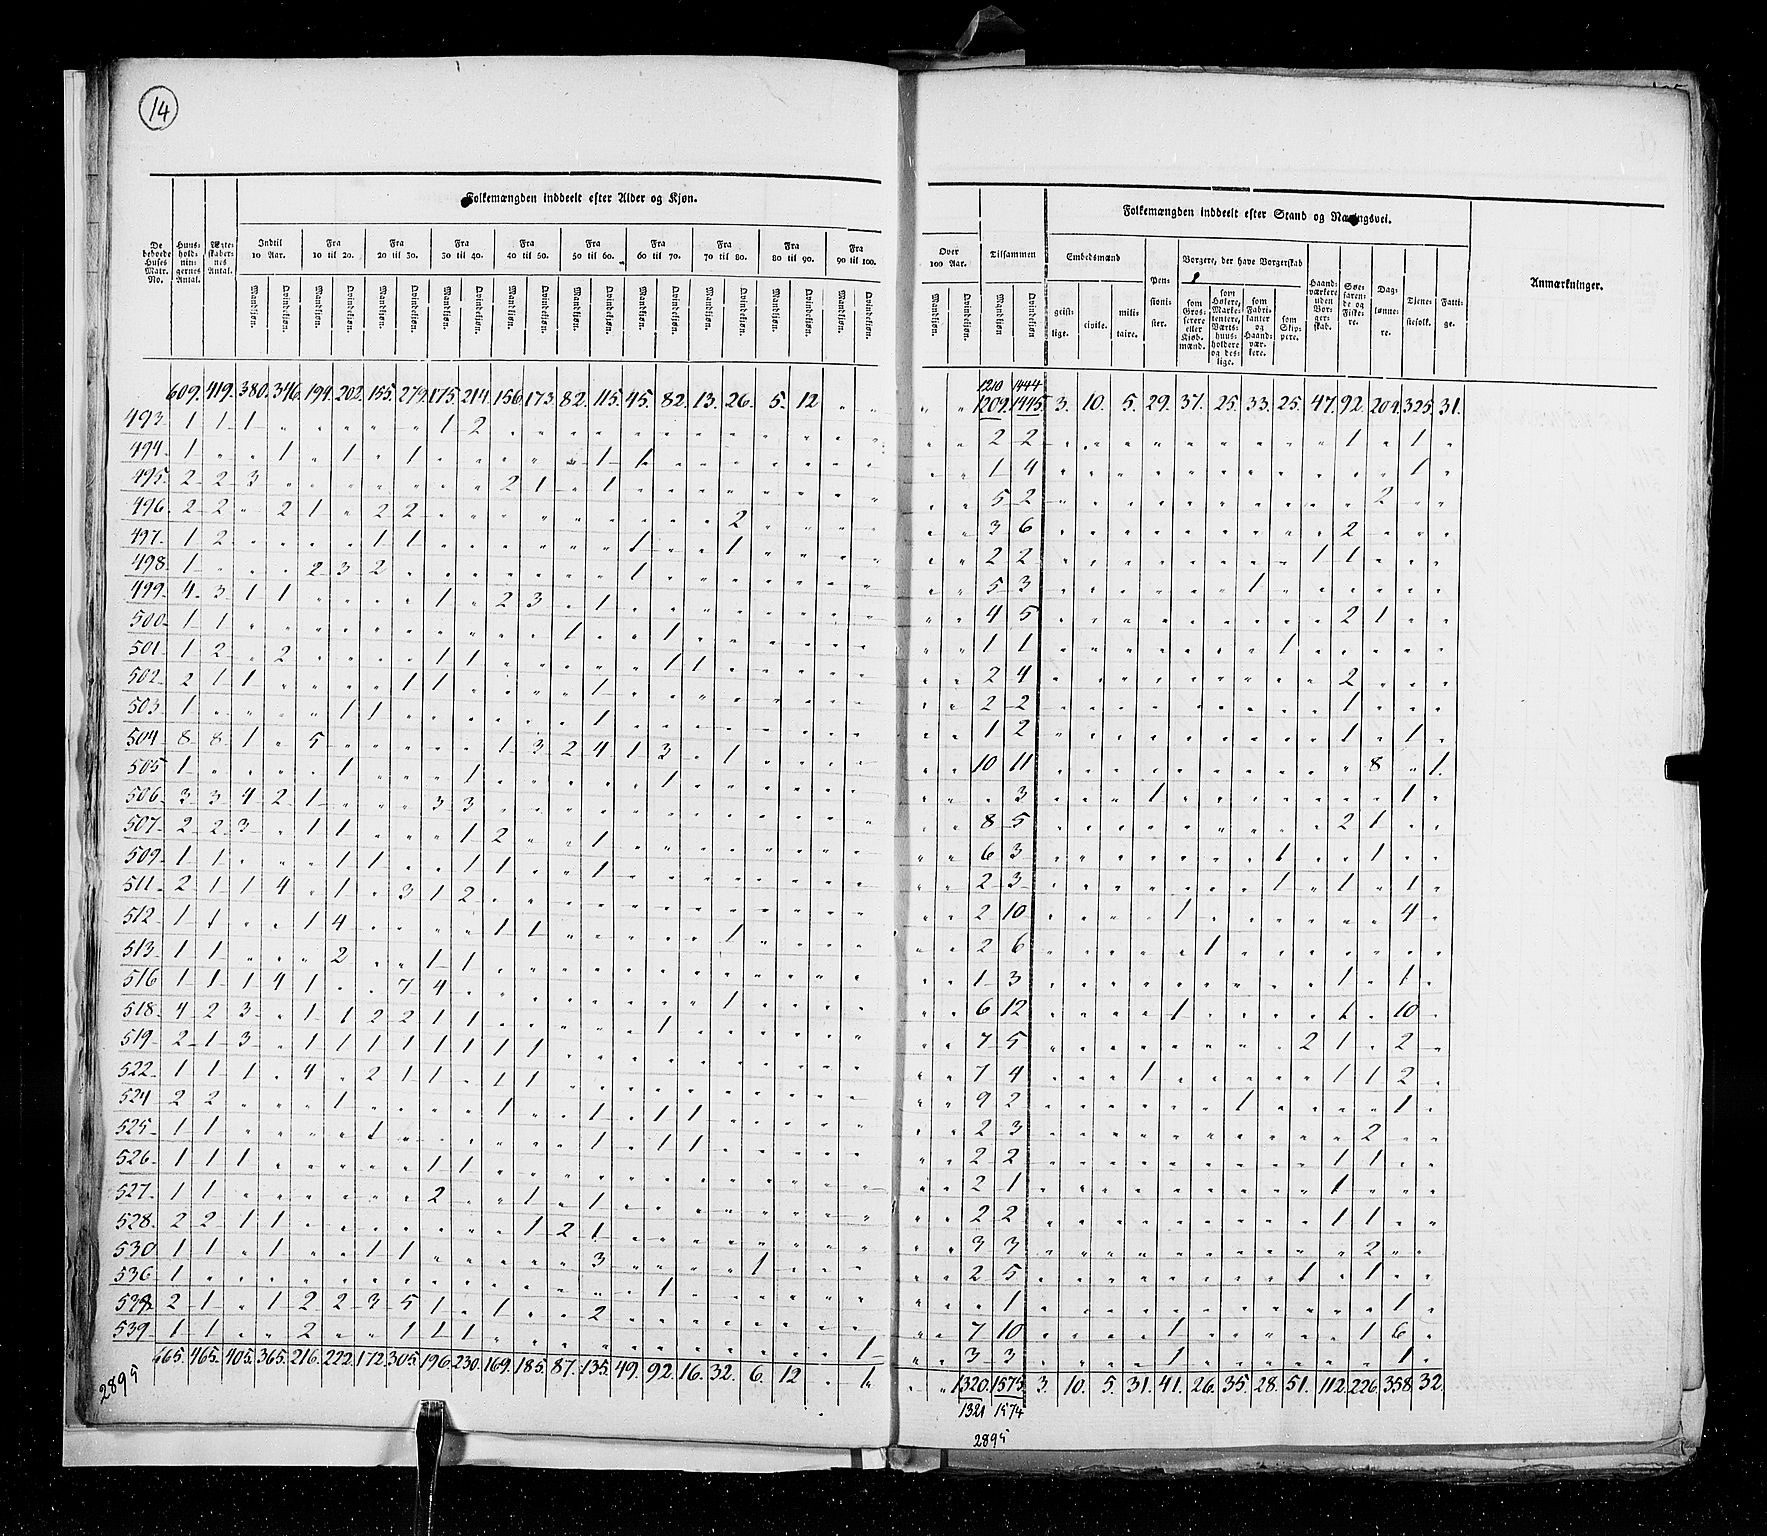 14
Folkemængden inddeelt efter Alder og Kjøn.
Folkemængden inddeelt efter Stand og Næringsvei.
De beboede Huses Matr. No.
Huusholdningernes Antal.
Ægteskabernes Antal.
Indtil 10 Aar.
Fra 10 til 20.
Fra 20 til 30.
Fra 30 til 40.
Fra 40 til 50.
Fra 50 til 60.
Fra 60 til 70.
Fra 70 til 80.
Fra 80 til 90.
Fra 90 til 100.
Over 100 Aar.
Tilsammen
Embedsmænd
Pensionister.
Borgere, der have Borgerskab
Haandværkere uden Borgerskab.
Søefarende og Fiskere.
Daglønnere.
Tjenestefolk.
Fattige.
Anmærkninger.
Mandkjøn. Qvindekjøn. Mandkjøn. Qvindekjøn. Mandkjøn. Qvindekjøn. Mandkjøn. Qvindekjøn. Mandkjøn. Qvindekjøn. Mandkjøn. Qvindekjøn. Mandkjøn. Qvindekjøn. Mandkjøn. Qvindekjøn. Mandkjøn. Qvindekjøn. Mandkjøn. Qvindekjøn. Mandkjøn. Qvindekjøn. Mandkjøn. Qvindekjøn.
geistlige. civile. militaire.
som Grosserere eller Kjøbmænd.
som Høkere, Marketentere, Værtshuusholdere og deslige.
som Fabrikanter og Haandværkere.
som Skippere.
1210 1444
609. 419. 380. 346. 194. 202. 155. 279. 175. 214. 156. 173. 82. 115. 45. 82. 13. 26. 5. 12 " " " " 1209. 1445. 3. 10. 5. 29. 37. 25. 33. 25. 47. 92. 209. 325. 31.
493 1 1 1 1 2 2 2 1 1
494 1 1 1 1 1 1 1 4 1
495 2 2 3 2 1 1 5 2 2
496 2 2 2 1 2 2 2 3 6 2
497 1 2 1 1 1 1 2 2 1 1
498 1 2 3 2 1 5 3 1
499 4 3 1 1 1 2 3 1 4 5 2 1
500 1 1 1 1 1 1 1
501 1 2 2 1 1 1 1 2 4 2
502 2 1 1 1 1 1 2 2 1
503 1 1 1 1 1 2 1 1
504 8 8 1 5 1 3 2 4 1 3 1 10 11 8 1
505 1 1 1 1 3 1 1
506 3 3 4 2 1 3 3 8 5 2 1
507 2 2 3 1 1 1 2 1 6 3 1 1
509 1 1 1 1 1 1 1 2 3 1 1 1
511 2 1 1 4 1 3 1 2 2 10 1 4
512 1 1 1 4 1 1 1 2 6 1
513 1 1 2 1 1 1 3 1 1
516 1 1 1 4 1 7 4 1 6 12 1 1 10
518 4 2 3 1 1 2 2 1 1 1 7 5 2 1 2
519 2 1 3 1 1 1 1 1 1 1 1 7 4 1 1 1 2
522 1 1 1 4 2 1 1 1 1 9 2 1 1
524 2 2 1 1 1 1 1 2 3 2
525 1 1 1 1 1 1 2 2 1 1
526 1 1 1 1 1 2 1 1
527 1 1 2 1 1 2 2 1 1
528 2 2 1 1 1 2 1 3 3 2
530 1 1 1 1 1 3 1 2 5 1 1
536 1 1 1 1
538 2 1 1 2 2 3 5 1 1 2 7 10 1 1 6
539 1 1 2 1 1 1 1 3 3 1 1
665. 465. 405. 365. 216. 222. 172. 305. 196. 230. 169. 185. 87. 135. 49. 92. 16. 32. 6. 12 " 1 " " 1320. 1575. 3. 10. 5. 31. 41. 26. 35. 28. 51. 112. 226. 358. 32.
2895
1321 1574
2895